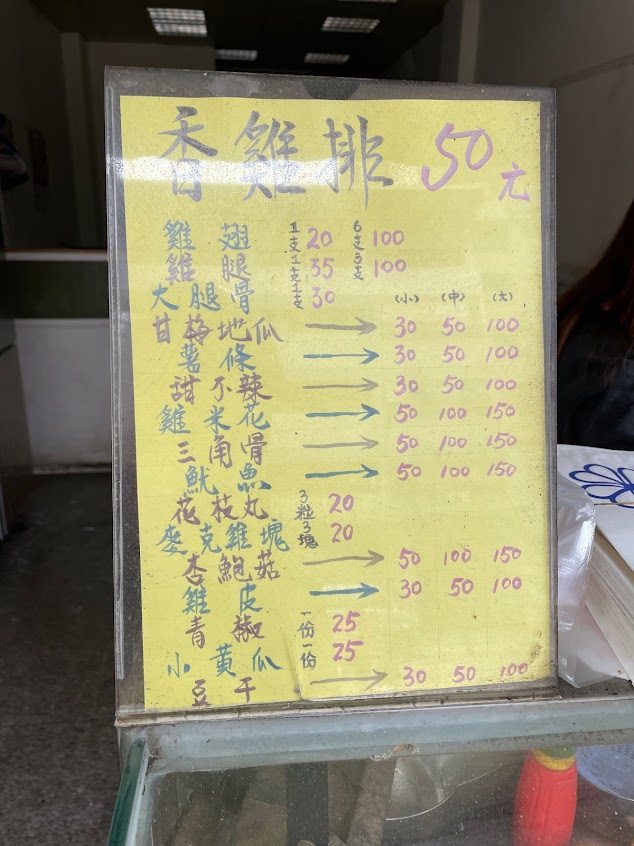 香雞排 50元
雞翅 1支 20 6支 100
雞腿 1支 35 3支 100
大腿骨 1支 30 (小) (中) (大)
甘梅地瓜 → 30 50 100
薯條 → 30 50 100
甜不辣 → 30 50 100
雞米花 → 50 100 150
三角骨 → 50 100 150
魷魚 → 50 100 150
花枝丸 3粒 20
麥克雞塊 3塊 20
杏鮑菇 → 50 100 150
雞皮 → 30 50 100
青椒 一份 25
小黃瓜 一份 25
豆干 → 30 50 100